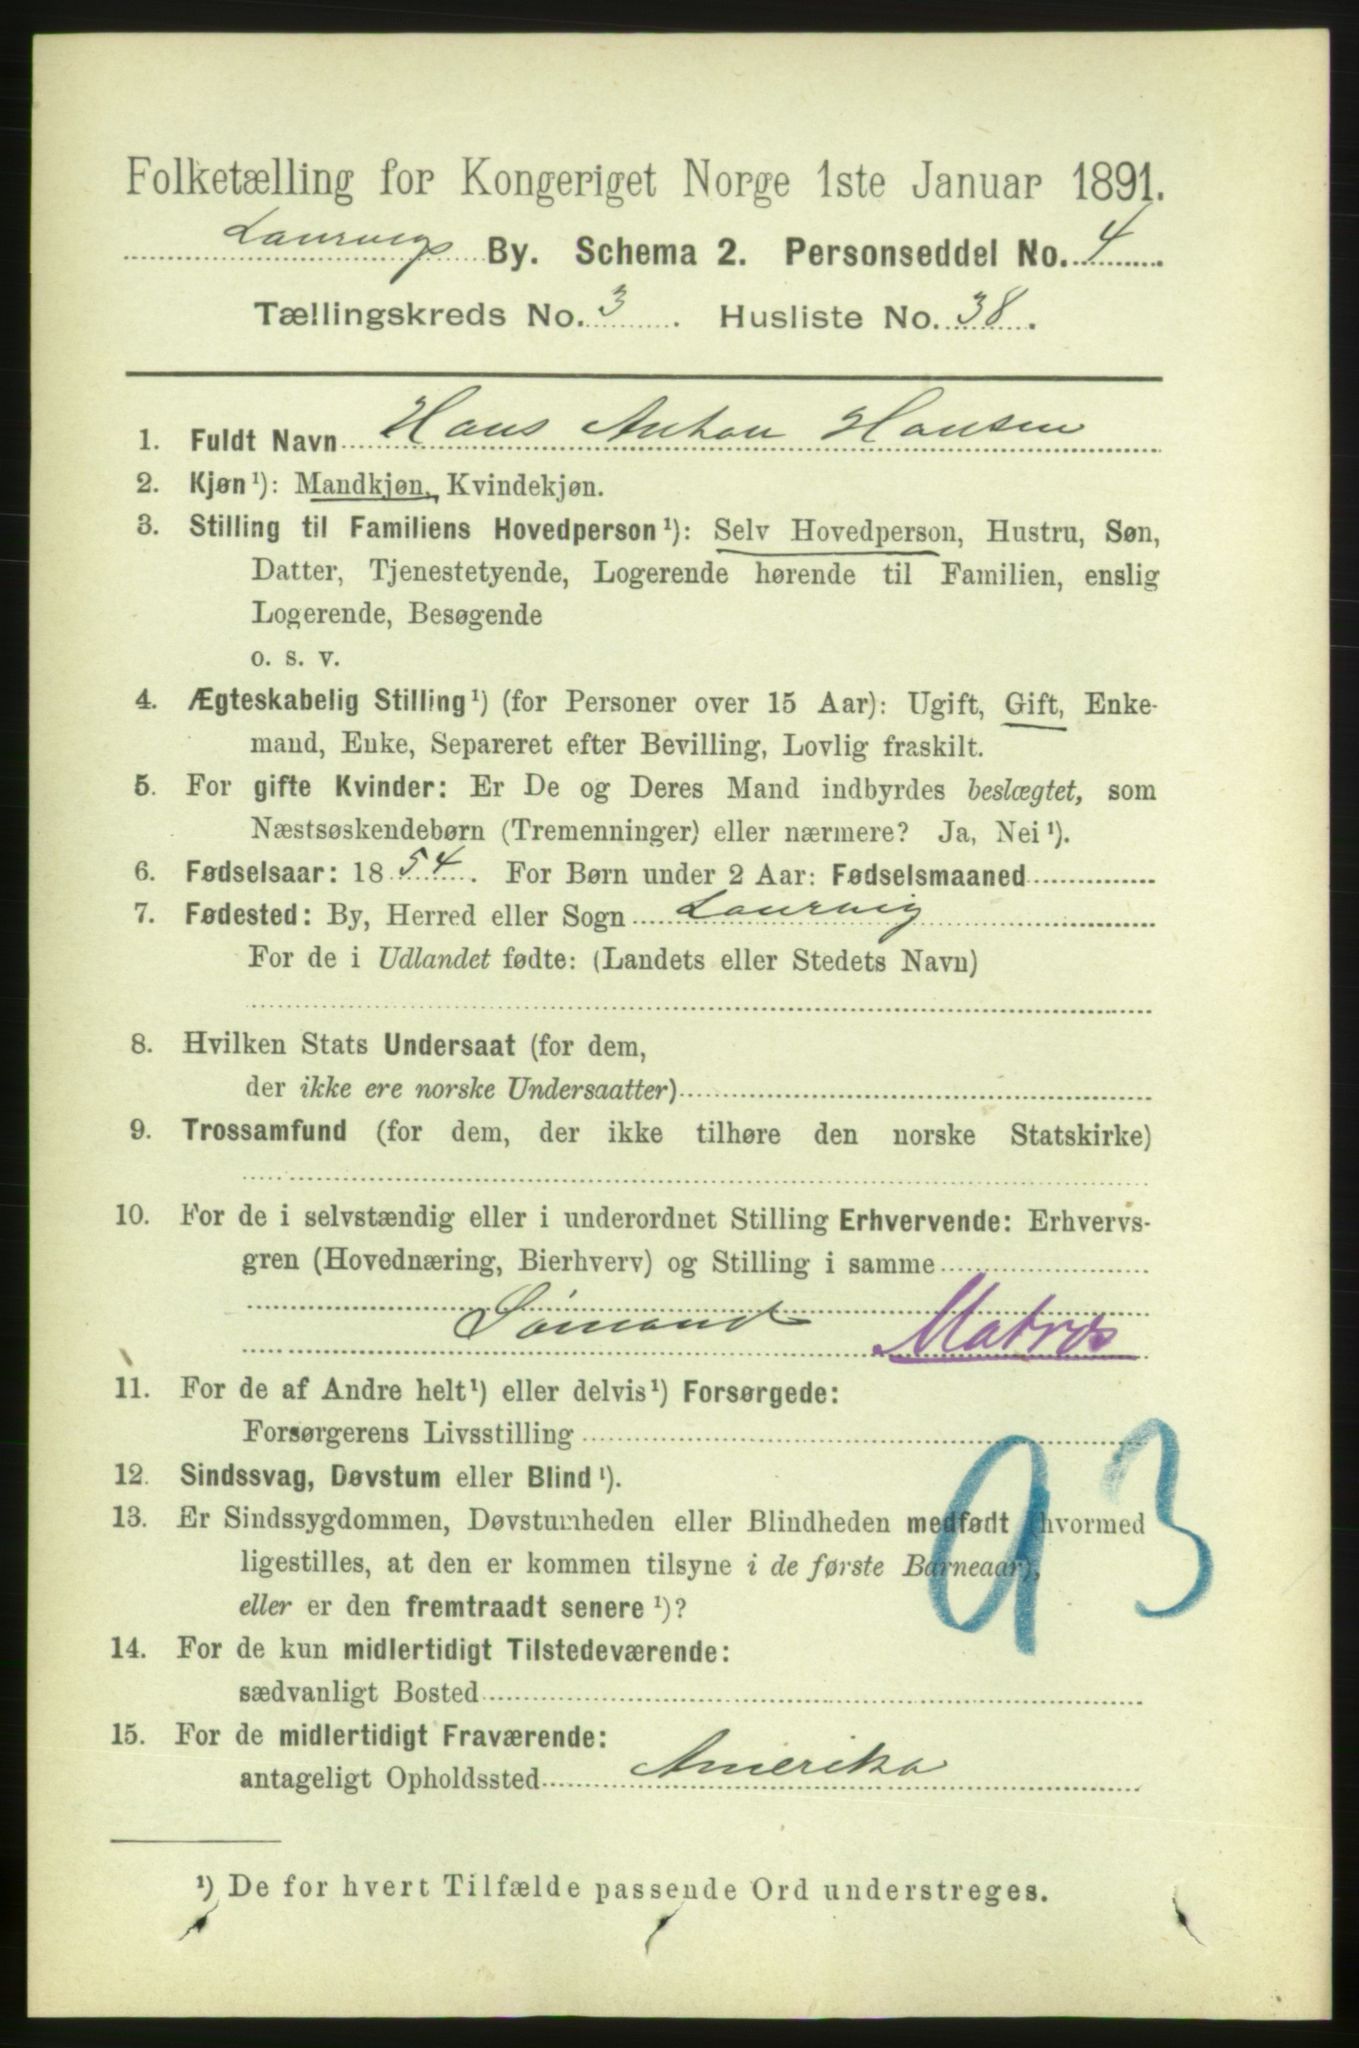 Folketælling for Kongeriget Norge 1ste Januar 1891.
Laurvigs By. Schema 2. Personseddel No. 4
Tællingskreds No. 3. Husliste No. 38.
1. Fuldt Navn Hans Anton Hansen
2. Kjøn¹): Mandkjøn, Kvindekjøn.
3. Stilling til Familiens Hovedperson¹): Selv Hovedperson, Hustru, Søn,
Datter, Tjenestetyende, Logerende hørende til Familien, enslig
Logerende, Besøgende
o. s. v.
4. Ægteskabelig Stilling¹) (for Personer over 15 Aar): Ugift, Gift, Enke-
mand, Enke, Separeret efter Bevilling, Lovlig fraskilt.
5. For gifte Kvinder: Er De og Deres Mand indbyrdes beslægtet, som
Næstsøskendebørn (Tremenninger) eller nærmere? Ja, Nei¹).
6. Fødselsaar: 1854. For Børn under 2 Aar: Fødselsmaaned
7. Fødested: By, Herred eller Sogn Laurvig
For de i Udlandet fødte: (Landets eller Stedets Navn)
8. Hvilken Stats Undersaat (for dem,
der ikke ere norske Undersaatter)
9. Trossamfund (for dem, der ikke tilhøre den norske Statskirke)
10. For de i selvstændig eller i underordnet Stilling Erhvervende: Erhvervs-
gren (Hovednæring, Bierhverv) og Stilling i samme
Sømand Matros
11. For de af Andre helt¹) eller delvis¹) Forsørgede:
Forsørgerens Livsstilling
12. Sindssvag, Døvstum eller Blind¹).
13. Er Sindssygdommen, Døvstumheden eller Blindheden medfødt (hvormed
ligestilles, at den er kommen tilsyne i de første Barneaar),
eller er den fremtraadt senere¹)?
93
14. For de kun midlertidigt Tilstedeværende:
sædvanligt Bosted
15. For de midlertidigt Fraværende:
antageligt Opholdssted Amerika
¹) De for hvert Tilfælde passende Ord understreges.